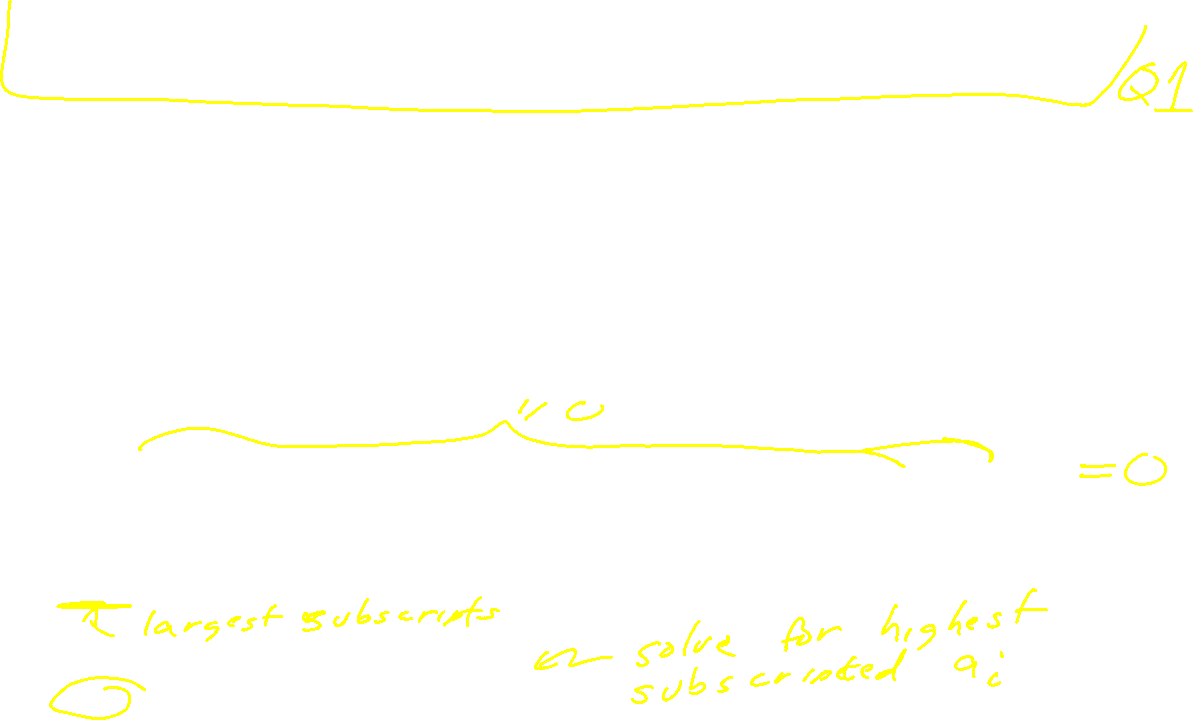 Q1
" 0
= 0
largest subscripts
solve for highest
subscripted a_i